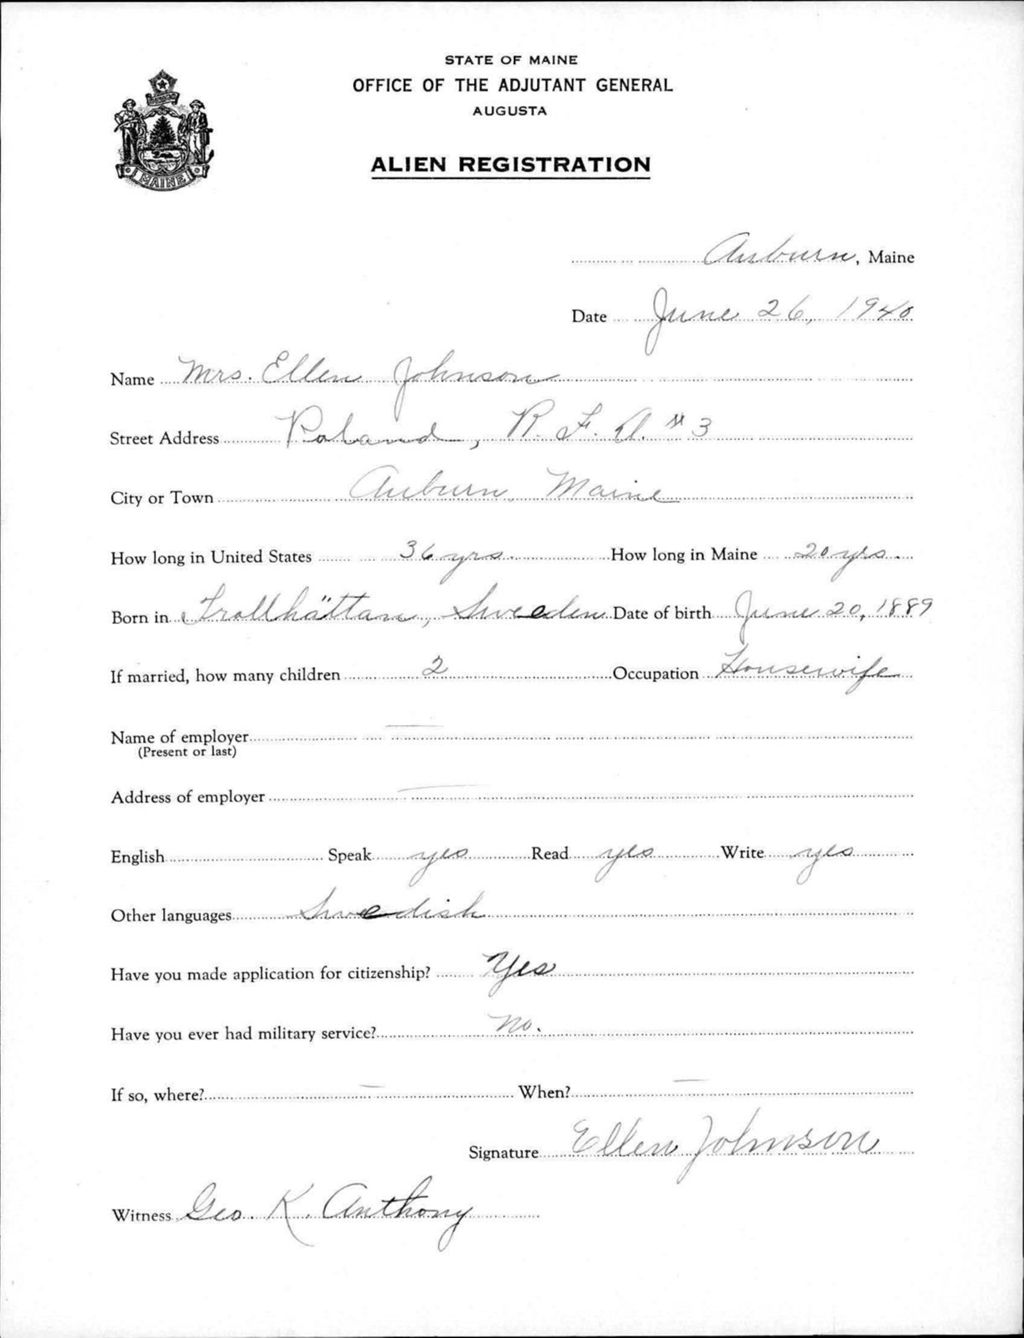 STATE OF MAINE
OFFICE OF THE ADJUTANT GENERAL
AUGUSTA
ALIEN REGISTRATION
MAINE
Auburn, Maine
Date June 26, 1940
Name Mrs. Ellen Johnson
Street Address Poland, R. F. D. #3
City or Town Auburn, Maine
How long in United States 36 yrs. How long in Maine 20 yrs.
Born in Trollhättan, Sweden Date of birth June 20, 1889
If married, how many children 2 Occupation Housewife
Name of employer —
(Present or last)
Address of employer —
English Speak yes Read yes Write yes
Other languages Swedish
Have you made application for citizenship? Yes
Have you ever had military service? No.
If so, where? — When? —
Signature Ellen Johnson
Witness Geo. K. Anthony